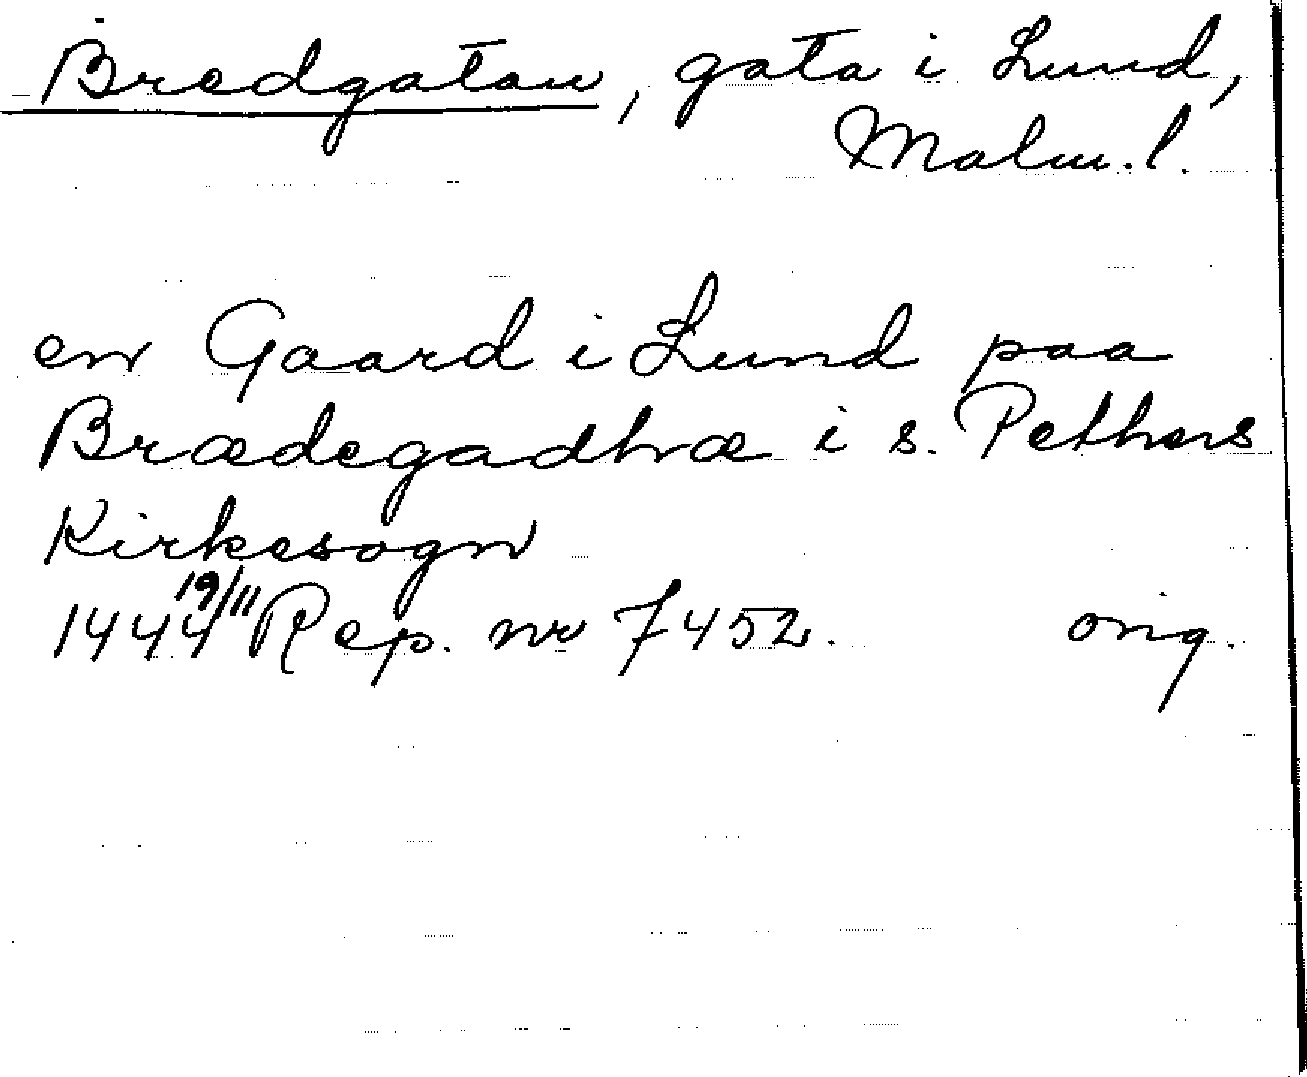 Bredgatan, gata i Lund,
Malm.l.
en Gaard i Lund paa
Brædegadhræ i s. Pethers
Kirkesogn
1444 19/11 Rep. nr 7452. orig.